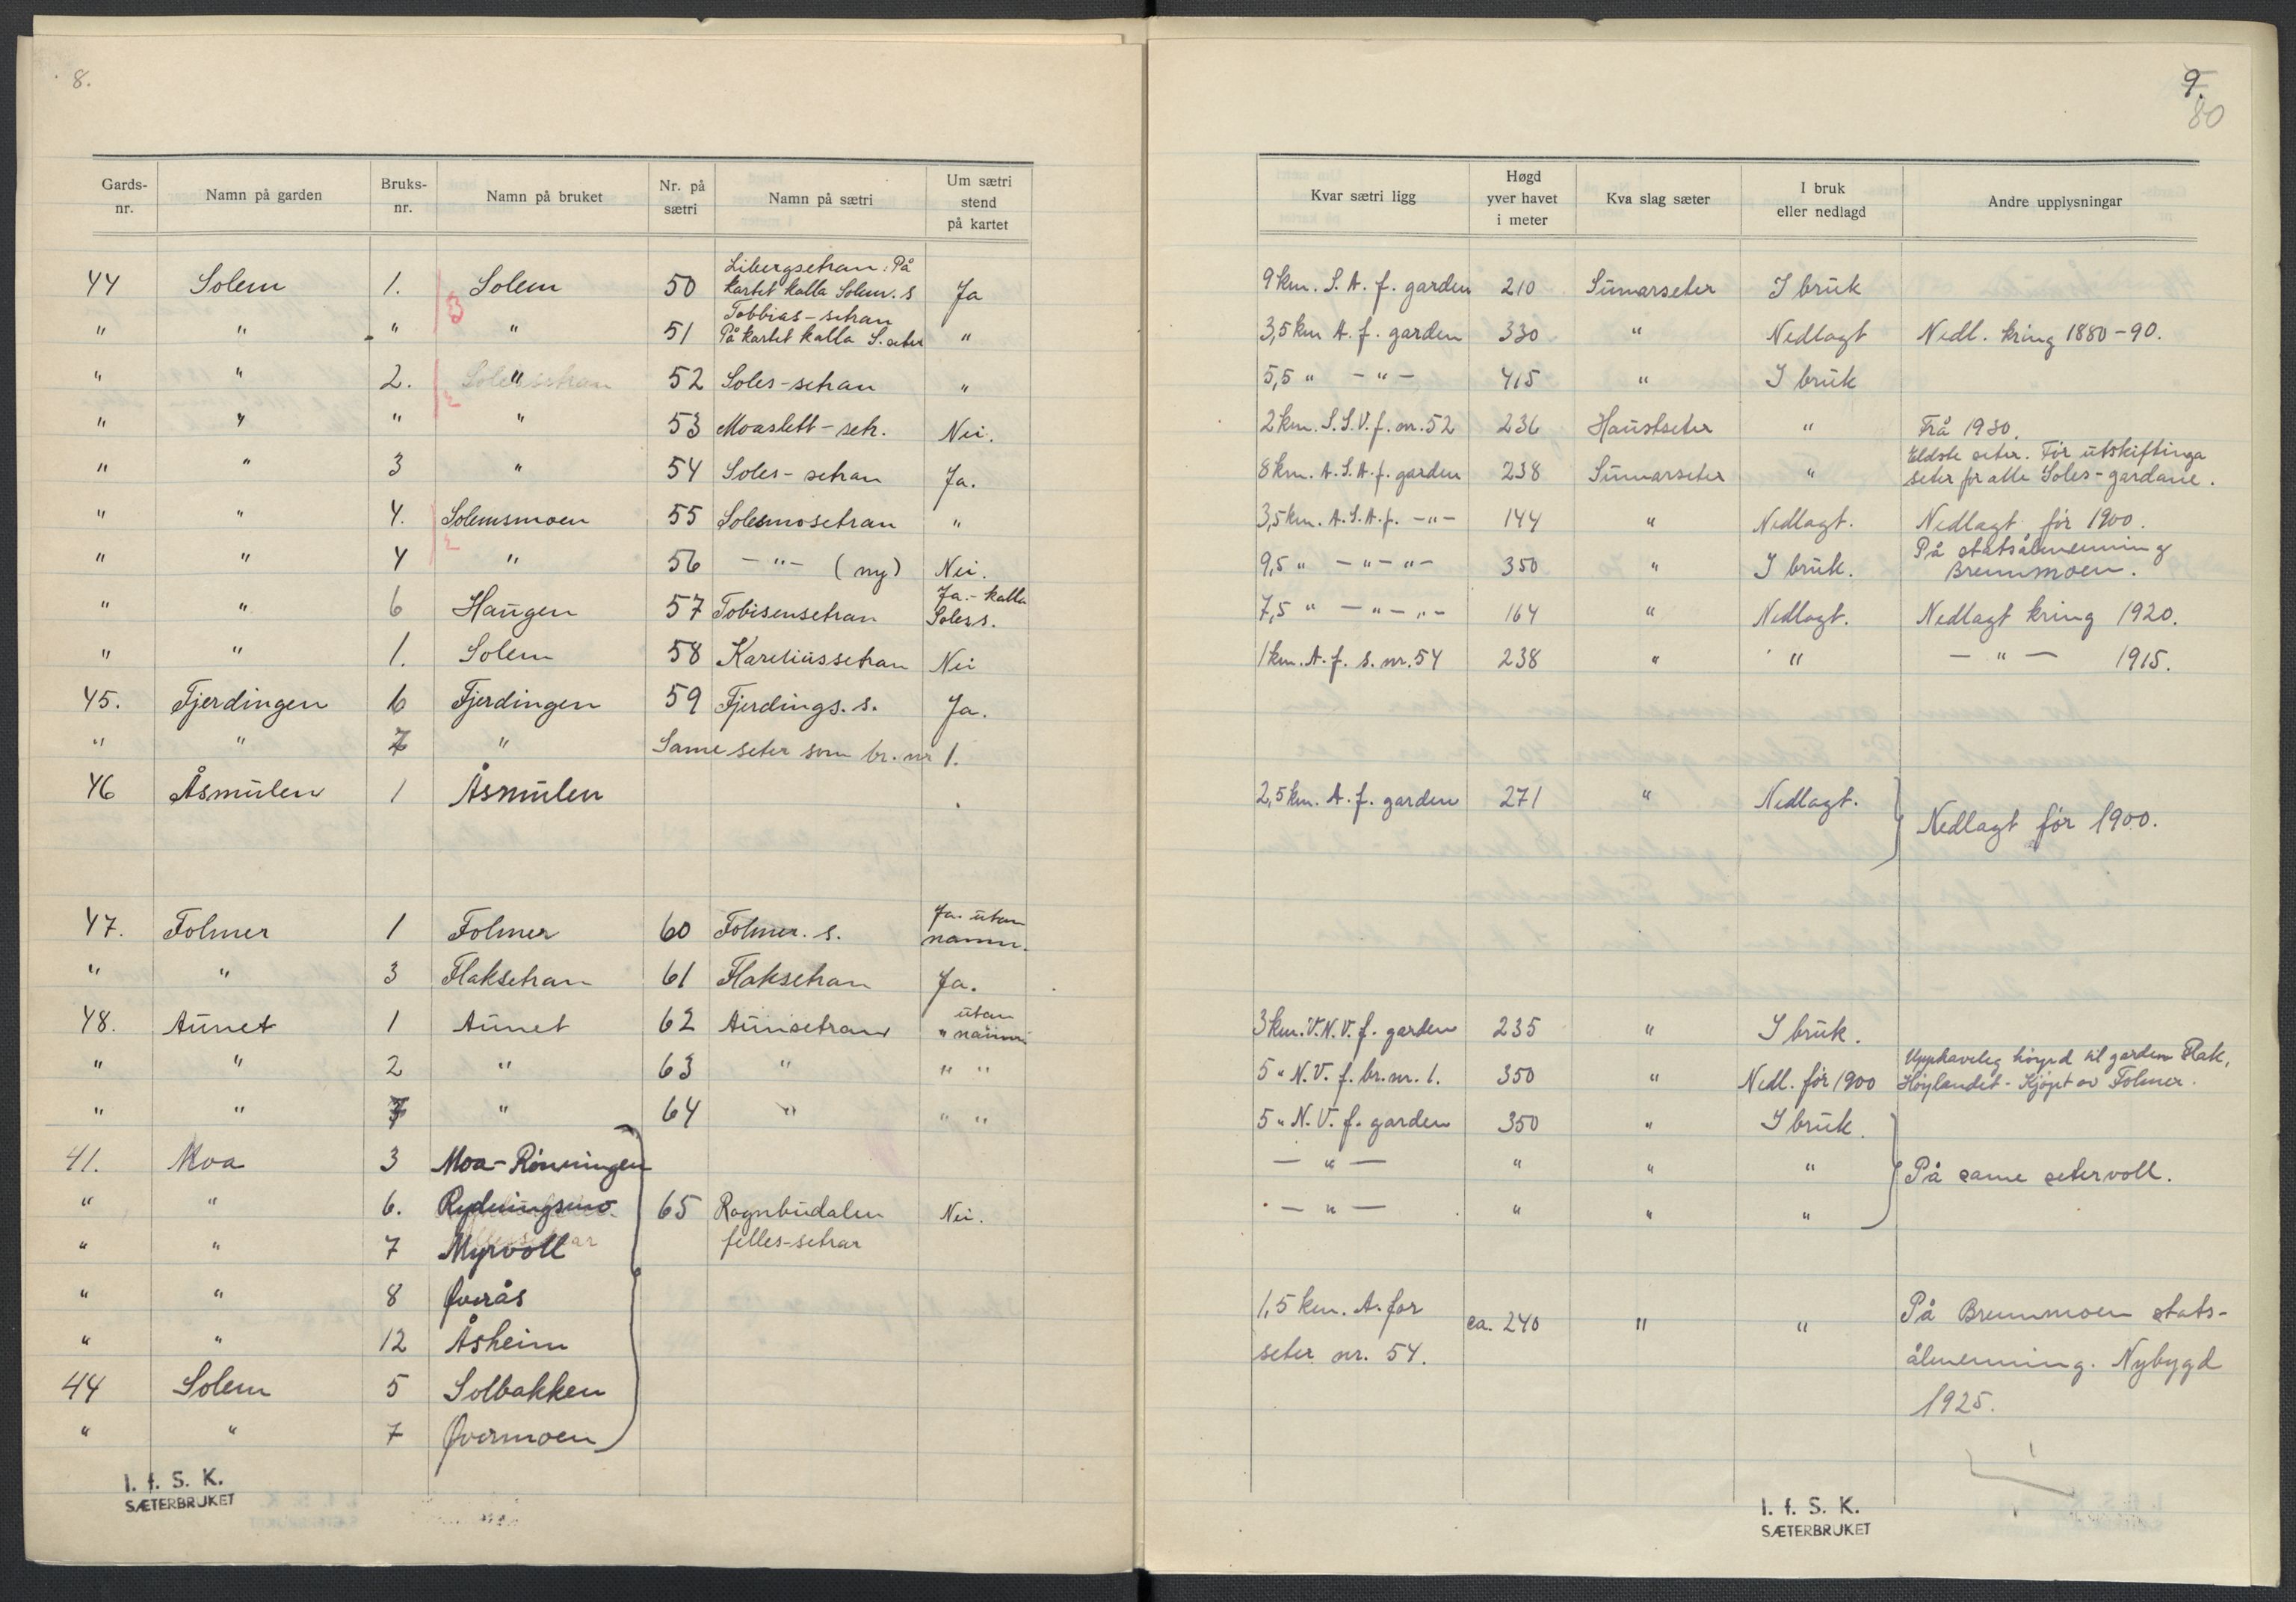 8.
Gards-nr. Namn på garden Bruks-nr. Namn på bruket Nr. på sætri Namn på sætri Um sætri stend på kartet
44 Solem 1. Solem 50 Libergsetran: På kartet kalla Solem. s Ja
" " " 3 " 51 Tobbias-setran På kartet kalla S. seter "
" " 2. " 52 Soles-setran "
" " " 2 " 53 Moaslett-setr. Nei.
" " 3 " 54 Soles-setran Ja.
" " 4. Solemsmoen 55 Solesmosetran "
" " 4 2 " 56 -"- (ny) Nei.
" " 6 Haugen 57 Tobisensetran Ja.- kalla Soles s.
" " 1. Solem 58 Kareliussetran Nei
45. Fjerdingen 6 Fjerdingen 59 Fjerdings. s. Ja.
" " 7 " Same seter som br. nr 1.
46 Åsmulen 1 Åsmulen
47. Folmer 1 Folmer 60 Folmer. s. Ja. utan namn.
" " 3 Flaksetran 61 Flaksetran Ja.
48. Aunet 1 Aunet 62 Aunsetran " utan namn
" " 2 " 63 " " "
" " 7 " 64 " " "
41. Moa 3 Moa-Rønningen
" " 6. Rydningsmo 65 Rognbudalen Nei.
" " 7 Myrvoll felles-setrar
" " 8 Øverås
" " 12 Åsheim
44 Solem 5 Solbakken
" " 7 Øvermoen
I. f. S. K.
SÆTERBRUKET
9.
80
Kvar sætri ligg Høgd yver havet i meter Kva slag sæter I bruk eller nedlagd Andre upplysningar
9 km. S. A. f. garden 210 Sumarseter I bruk
3,5 km A. f. garden 330 " Nedlagt Nedl. kring 1880-90.
5,5 " -"- 415 " I bruk
2 km. S.S.V. f. nr. 52 236 Haustseter " Frå 1930.
8 km. A.S.A. f. garden 238 Sumarseter " Eldste seter. Før utskiftinga seter for alle Soles-gardane.
3,5 km. A.S.A. f. -"- 144 " Nedlagt. Nedlagt før 1900.
9,5 " -"-"- 350 " I bruk. På statsålmenning Brennmoen.
7,5 " -"-"- 164 " Nedlagt. Nedlagt kring 1920.
1 km. A. f. s. nr. 54 238 " " -"- 1915.
2,5 km. A. f. garden 271 " Nedlagt. Nedlagt før 1900.
3 km. V.N.V. f. garden 235 " I bruk.
5 " N.V. f. br. nr. 1. 350 " Nedl. før 1900 Upphaveleg høyrd til garden Flak, Høylandet - Kjøpt av Folmer.
5 " N.V. f. garden 350 " I bruk.
-"- " " " På same setervoll.
-"- " " "
1,5 km. A. for ca. 240 " " På Brennmoen stats-
seter nr. 54. ålmenning. Nybygd
1925.
I. f. S. K.
SÆTERBRUKET